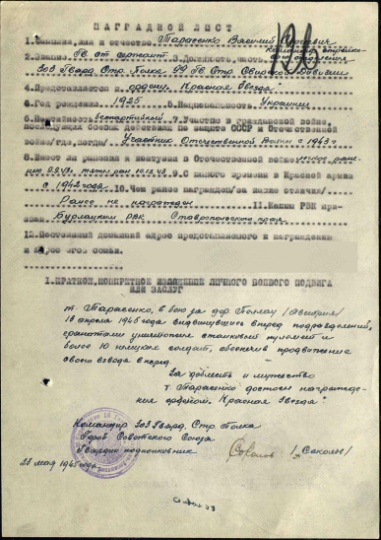 НАГРАДНОЙ ЛИСТ
1. Фамилия, имя и отчество Тарасенко Василий
2. Звание Гв. ст. сержант 3. Должность, часть
303 Гвард. Стр. Полка 99 Гв. Стр. Свирской Дивизии
4. Представляется к ордену "Красная Звезда"
6. Год рождения 1925 5. Национальность Украинец
6. Партийность беспартийный 7. Участие в гражданской войне,
последующих боевых действиях по защите СССР и Отечественной
войне/где, когда/ Участник Отечественной Войны с 1943 г.
8. Имеет ли ранения и контузии в Отечественной войне
10.12.43 9. С какого времени в Красной армии
с 1942 года 10. Чем ранее награжден/за какие отличия/
Ранее не награжден 11. Каким РВК при-
зван Бурлацким РВК Ставропольского края
12. Постоянный домашний адрес представляемого к награждению
и адрес его семьи.
1. КРАТКОЕ, КОНКРЕТНОЕ ИЗЛОЖЕНИЕ ЛИЧНОГО БОЕВОГО ПОДВИГА
ИЛИ ЗАСЛУГ
т. Тарасенко, в бою за дер. /Австрия/
18 апреля 1945 года выдвинувшись вперед подразделений,
гранатами уничтожил станковый пулемет и
более 10 немецких солдат, обеспечив продвижение
своего взвода вперед.
За доблесть и мужество
т. Тарасенко достоин награжде-
ния орденом "Красная Звезда"
Командир 303 Гвард. Стр. Полка
Герой Советского Союза
Гвардии подполковник /Соколов/
мая 1945 года